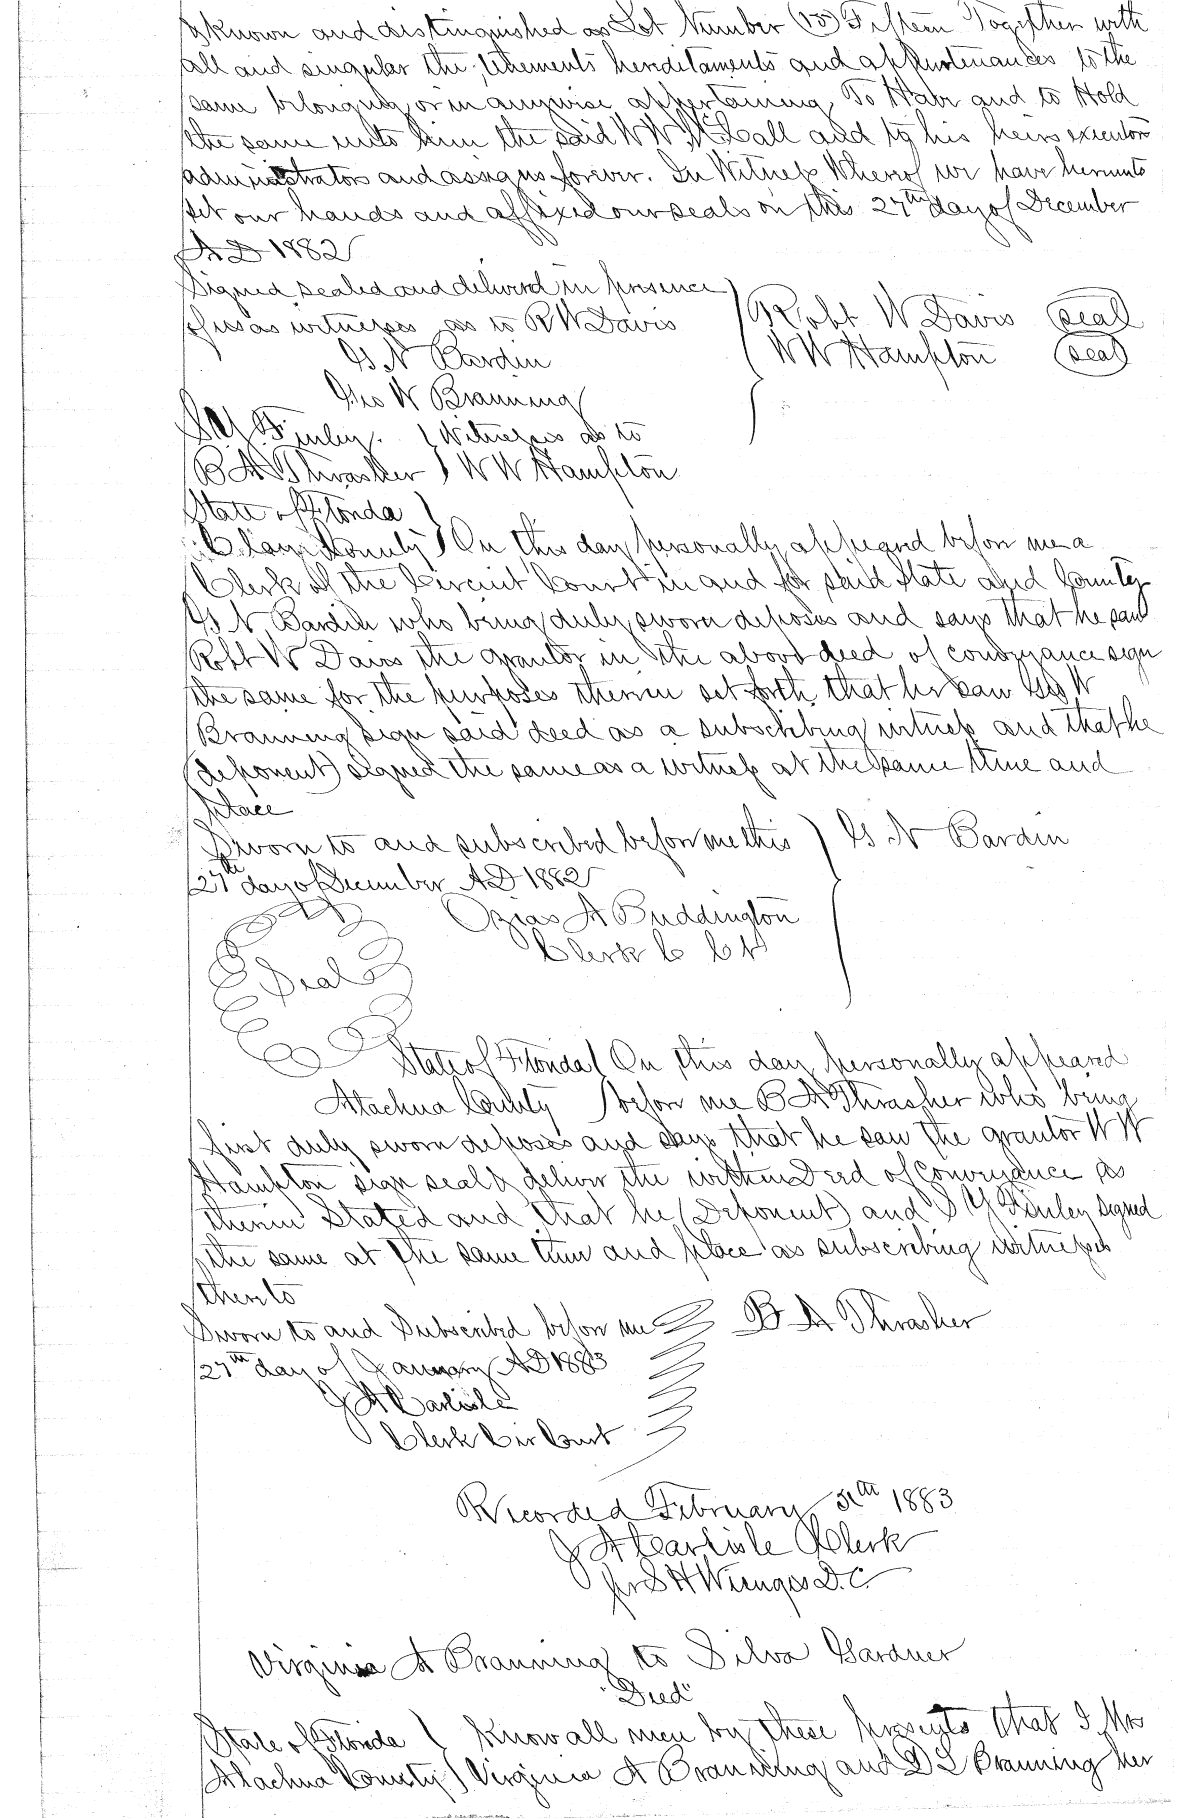 known and distinguished as Lot Number (15) Fifteen Together with
all and singular the, tenements hereditaments and appurtenances to the
same belonging or in anywise appertaining, To Have and to Hold
the same unto him the said W W McCall and to his heirs executors
administrators and assigns forever. In Witness Whereof we have hereunto
set our hands and affixed our seals on this 27th day of December
A D 1882
Signed sealed and delivered in presence
of us as witnesses as to R W Davis
Robt W Davis (seal)
W W Hampton (seal)
G N Bardin
Geo W Branning
S Y Finley. } Witnesses as to
B A Thrasher } W W Hampton
State of Florida }
Clay County } On this day personally appeared before me a
Clerk of the Circuit Court in and for said State and County
G N Bardin who being duly sworn deposes and says that he saw
Robt W Davis the grantor in the above deed of conveyance sign
the same for the purposes therein set forth, that he saw Geo W
Branning sign said deed as a subscribing witness and that he
(deponent) signed the same as a witness at the same time and
place
Sworn to and subscribed before me this } G N Bardin
27th day of December A D 1882
Ozias A Buddington
Clerk C Ct
Seal
State of Florida } On this day personally appeared
Alachua County } before me B A Thrasher who being
first duly sworn deposes and says that he saw the grantor W W
Hampton sign seal & deliver the within Deed of Conveyance as
therein Stated and that he (Deponent) and S Y Finley signed
the same at the same time and place as subscribing witnesses
thereto
Sworn to and Subscribed before me B A Thrasher
27th day of January A D 1883
J A Carlisle
Clerk Cir Court
Recorded February 5th 1883
J A Carlisle Clerk
pr S H Wienges D.C.
Virginia A Branning to Silva Gardner
"Deed"
State of Florida } Know all men by these presents that I Mrs
Alachua County } Virginia A Branning and D L Branning her